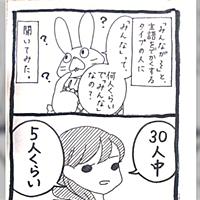 「みんなが〜」と
主語をでかくする
タイプの人に
みんなって、
何人くらい
でみんな
なの？
聞いてみた。
？
？
？
30人中
5人くらい